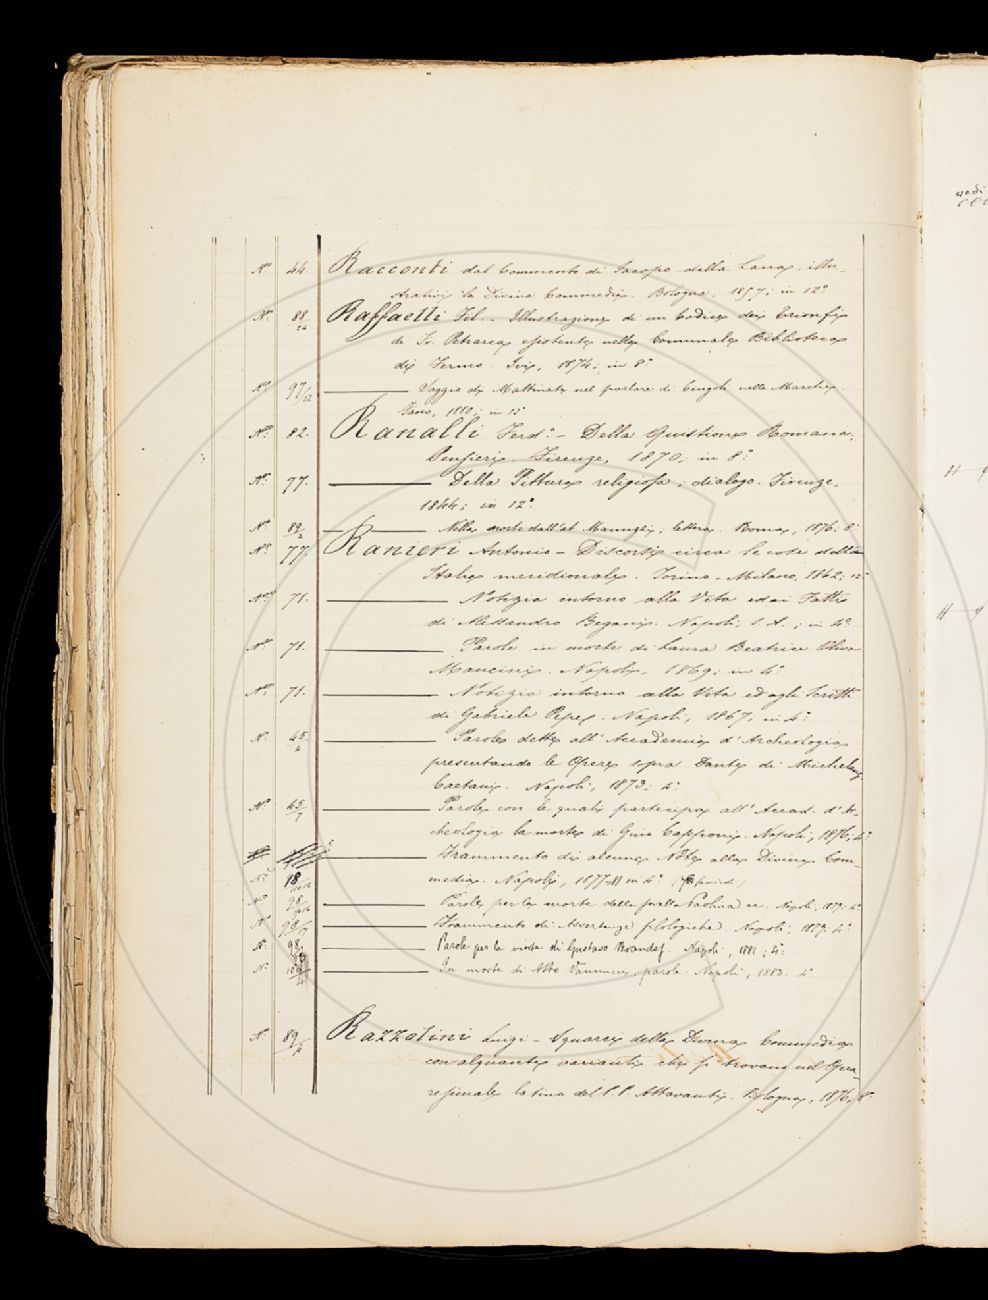 N.º 44. Racconti dal Commento di Jacopo della Lana, illu-
strativi la Divina Commedia. Bologna, 1857; in 12º
N.º 88/24 Raffaelli Fil. - Illustrazione di un Codice dei Trionfi
di Fr. Petrarca esistente nella Comunale Biblioteca
di Fermo. Ivi, 1874; in 8º
N.º 97/12 Saggio di Mattinate nel parlare di Cingoli nelle Marche.
Fano, 1880; in 12º
N.º 82. Ranalli Ferd.º - Della Quistione Romana;
Pensieri. Firenze, 1870; in 8º
N.º 77. Della Pittura religiosa; dialogo. Firenze,
1844; in 12º
N.º 89/2 Nella morte dell'ab. Manuzzi, lettera. Roma, 1876; 8º
N.º 77. Ranieri Antonio - Discorsi circa le cose della
Italia meridionale. Torino - Milano, 1862; 12º
N.º 71. Notizia intorno alla Vita ed ai Fatti
di Alessandro Begani. Napoli, s. d.; in 4º
N.º 71. Parole in morte di Laura Beatrice Oliva
Mancini. Napoli, 1869; in 4º
N.º 71. Notizia intorno alla Vita ed agli Scritti
di Gabriele Pepe. Napoli, 1867, in 4º
N.º 45/4 Parole dette all'Accademia d'Archeologia
presentando le Opere sopra Dante di Michelang.
Caetani. Napoli, 1873; 4º
N.º 45/7 Parole con le quali partecipa all'Accad. d'Ar-
cheologia la morte di Gino Capponi. Napoli, 1876, 4º
Frammento di alcune Note alla Divina Com-
N.º 98 media. Napoli, 1877 in 4º
N.º 98 Parole per la morte della sorella Paolina Napoli, 1879. 4º
N.º 98 Frammento di Avvertenze filologiche. Napoli, 1879. 4º
N. 98 Parole per la morte di Gustavo Napoli, 1881; 4º
N. In morte di Atto Vannucci, parole. Napoli, 1883. 4º
N. 89/4 Razzolini Luigi - Squarci della Divina Commedia
con alquante varianti che si trovano nel Qua-
resimale latino del P. P. Attavanti. Bologna, 1876, 8º
vedi